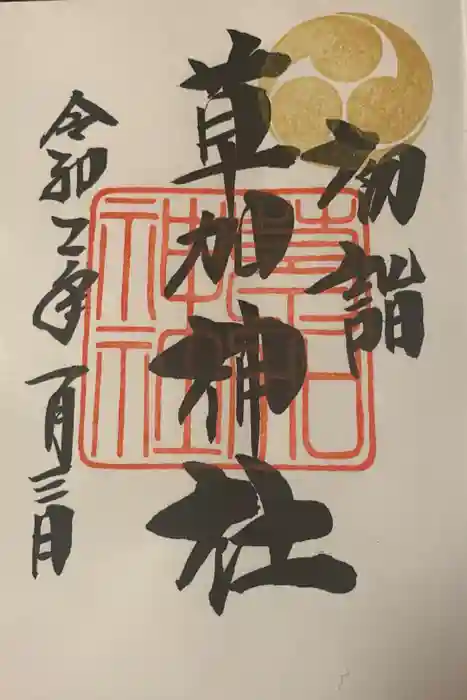 初詣
草加神社
令和二年一月三日
草加神社